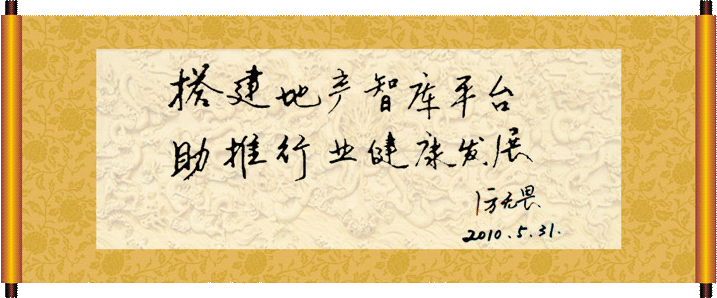 搭建地产智库平台
助推行业健康发展
厉无畏
2010.5.31.